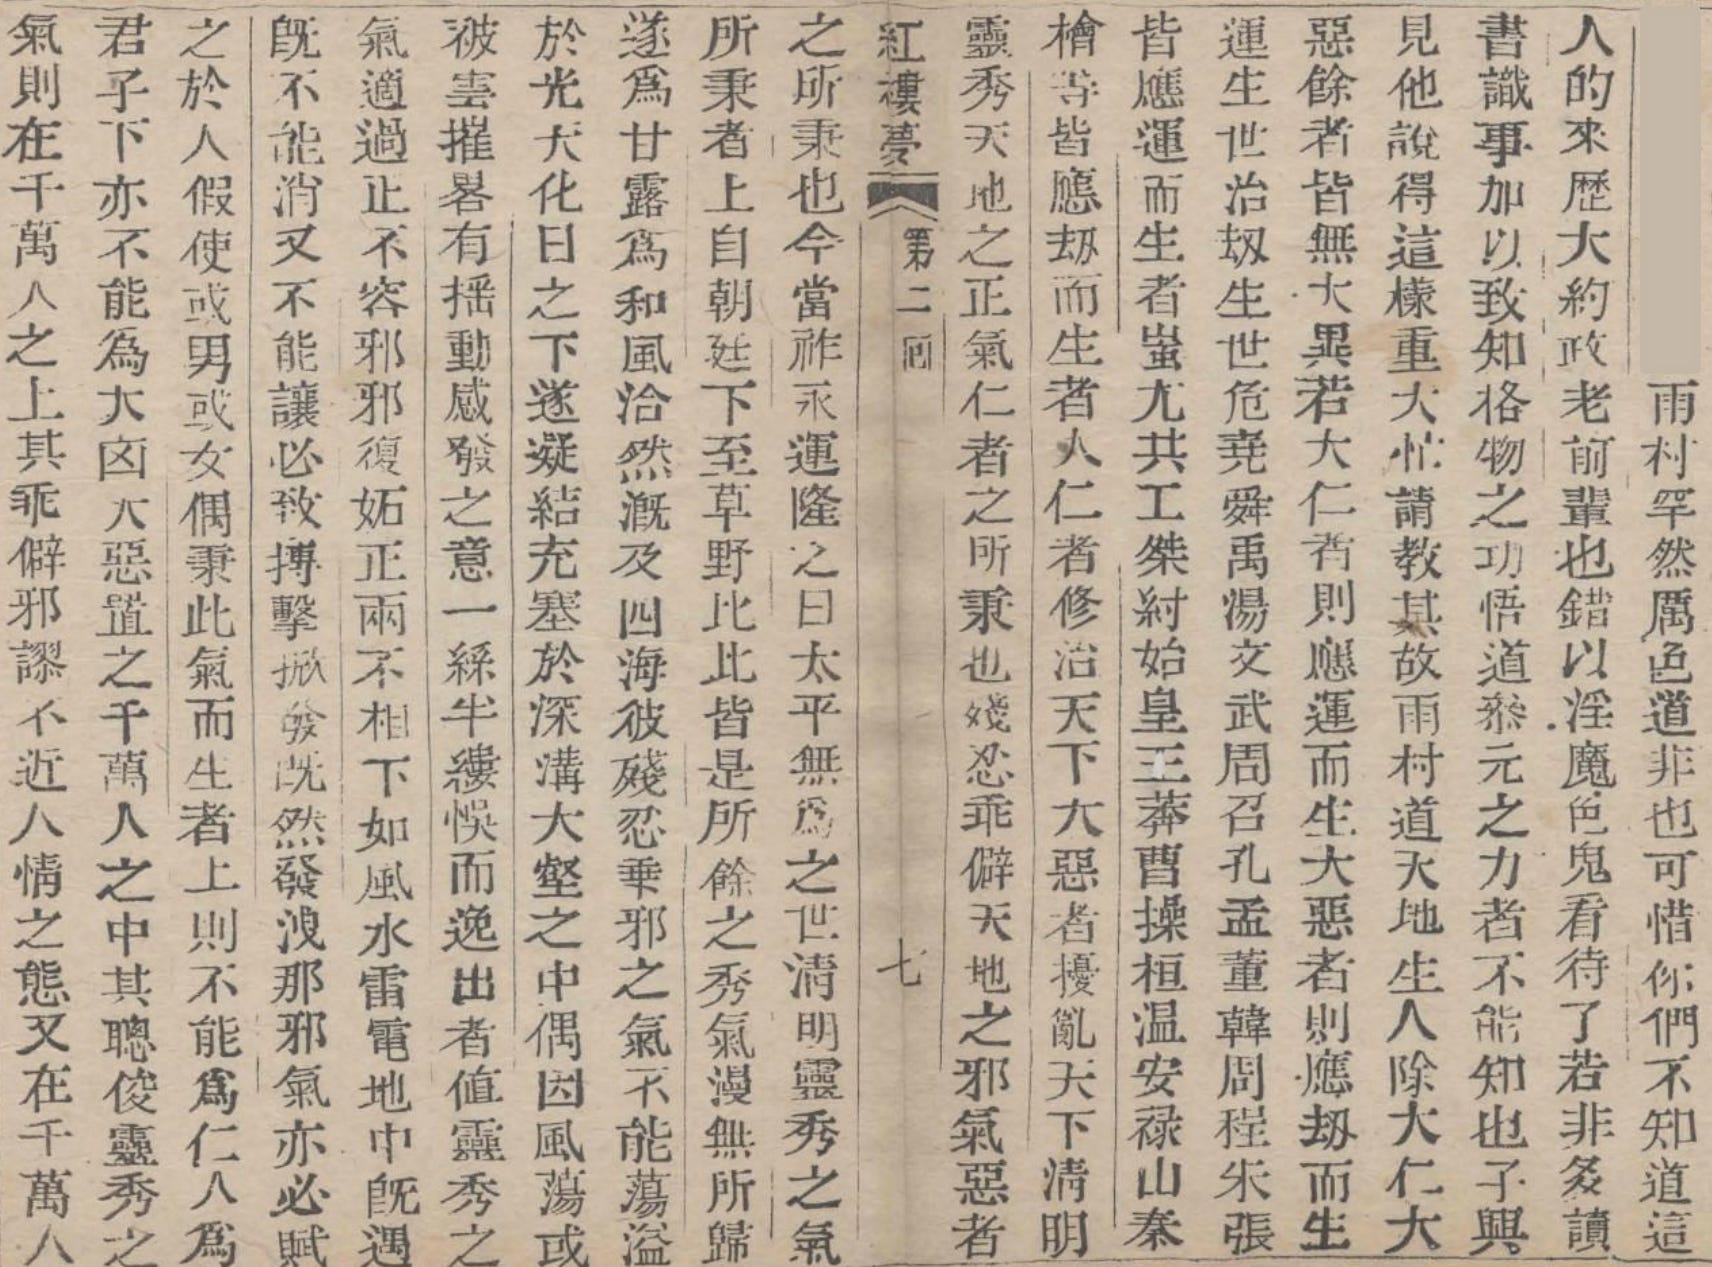 雨村罕然厲色道非也可惜你們不知道這
人的來歷大約政老前輩也錯以淫魔色鬼看待了若非多讀
書識事加以致知格物之功悟道叅元之力者不能知也子興
見他說得這樣重大忙請教其故雨村道天地生人除大仁大
惡餘者皆無大異若大仁者則應運而生大惡者則應刼而生
運生世治刼生世危堯舜禹湯文武周召孔孟董韓周程朱張
皆應運而生者蚩尤共工桀紂始皇王莽曹操桓温安禄山秦
檜等皆應刼而生者大仁者修治天下大惡者擾亂天下清明
靈秀天地之正氣仁者之所秉也殘忍乖僻天地之邪氣惡者
紅樓夢 第二囘 七
之所秉也今當祚永運隆之日太平無爲之世清明靈秀之氣
所秉者上自朝廷下至草野比比皆是所餘之秀氣漫無所歸
遂爲甘露爲和風洽然溉及四海彼殘忍乖邪之氣不能蕩溢
於光天化日之下遂凝結充塞於深溝大壑之中偶因風蕩或
被雲摧畧有揺動感發之意一絲半縷悞而逸出者值靈秀之
氣適過正不容邪邪復妬正兩不相下如風水雷電地中旣遇
旣不能消又不能讓必致搏擊掀發旣然發洩那邪氣亦必賦
之於人假使或男或女偶秉此氣而生者上則不能爲仁人爲
君子下亦不能爲大囟大惡置之千萬人之中其聰俊靈秀之
氣則在千萬人之上其乖僻邪謬不近人情之態又在千萬人